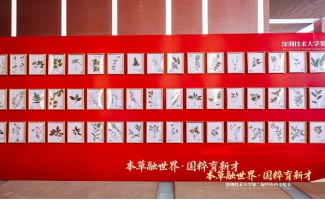 深圳技术大学第
本草融世界·国粹育新才
本草融世界·国粹育新才
深圳技术大学第二届中医药文化节